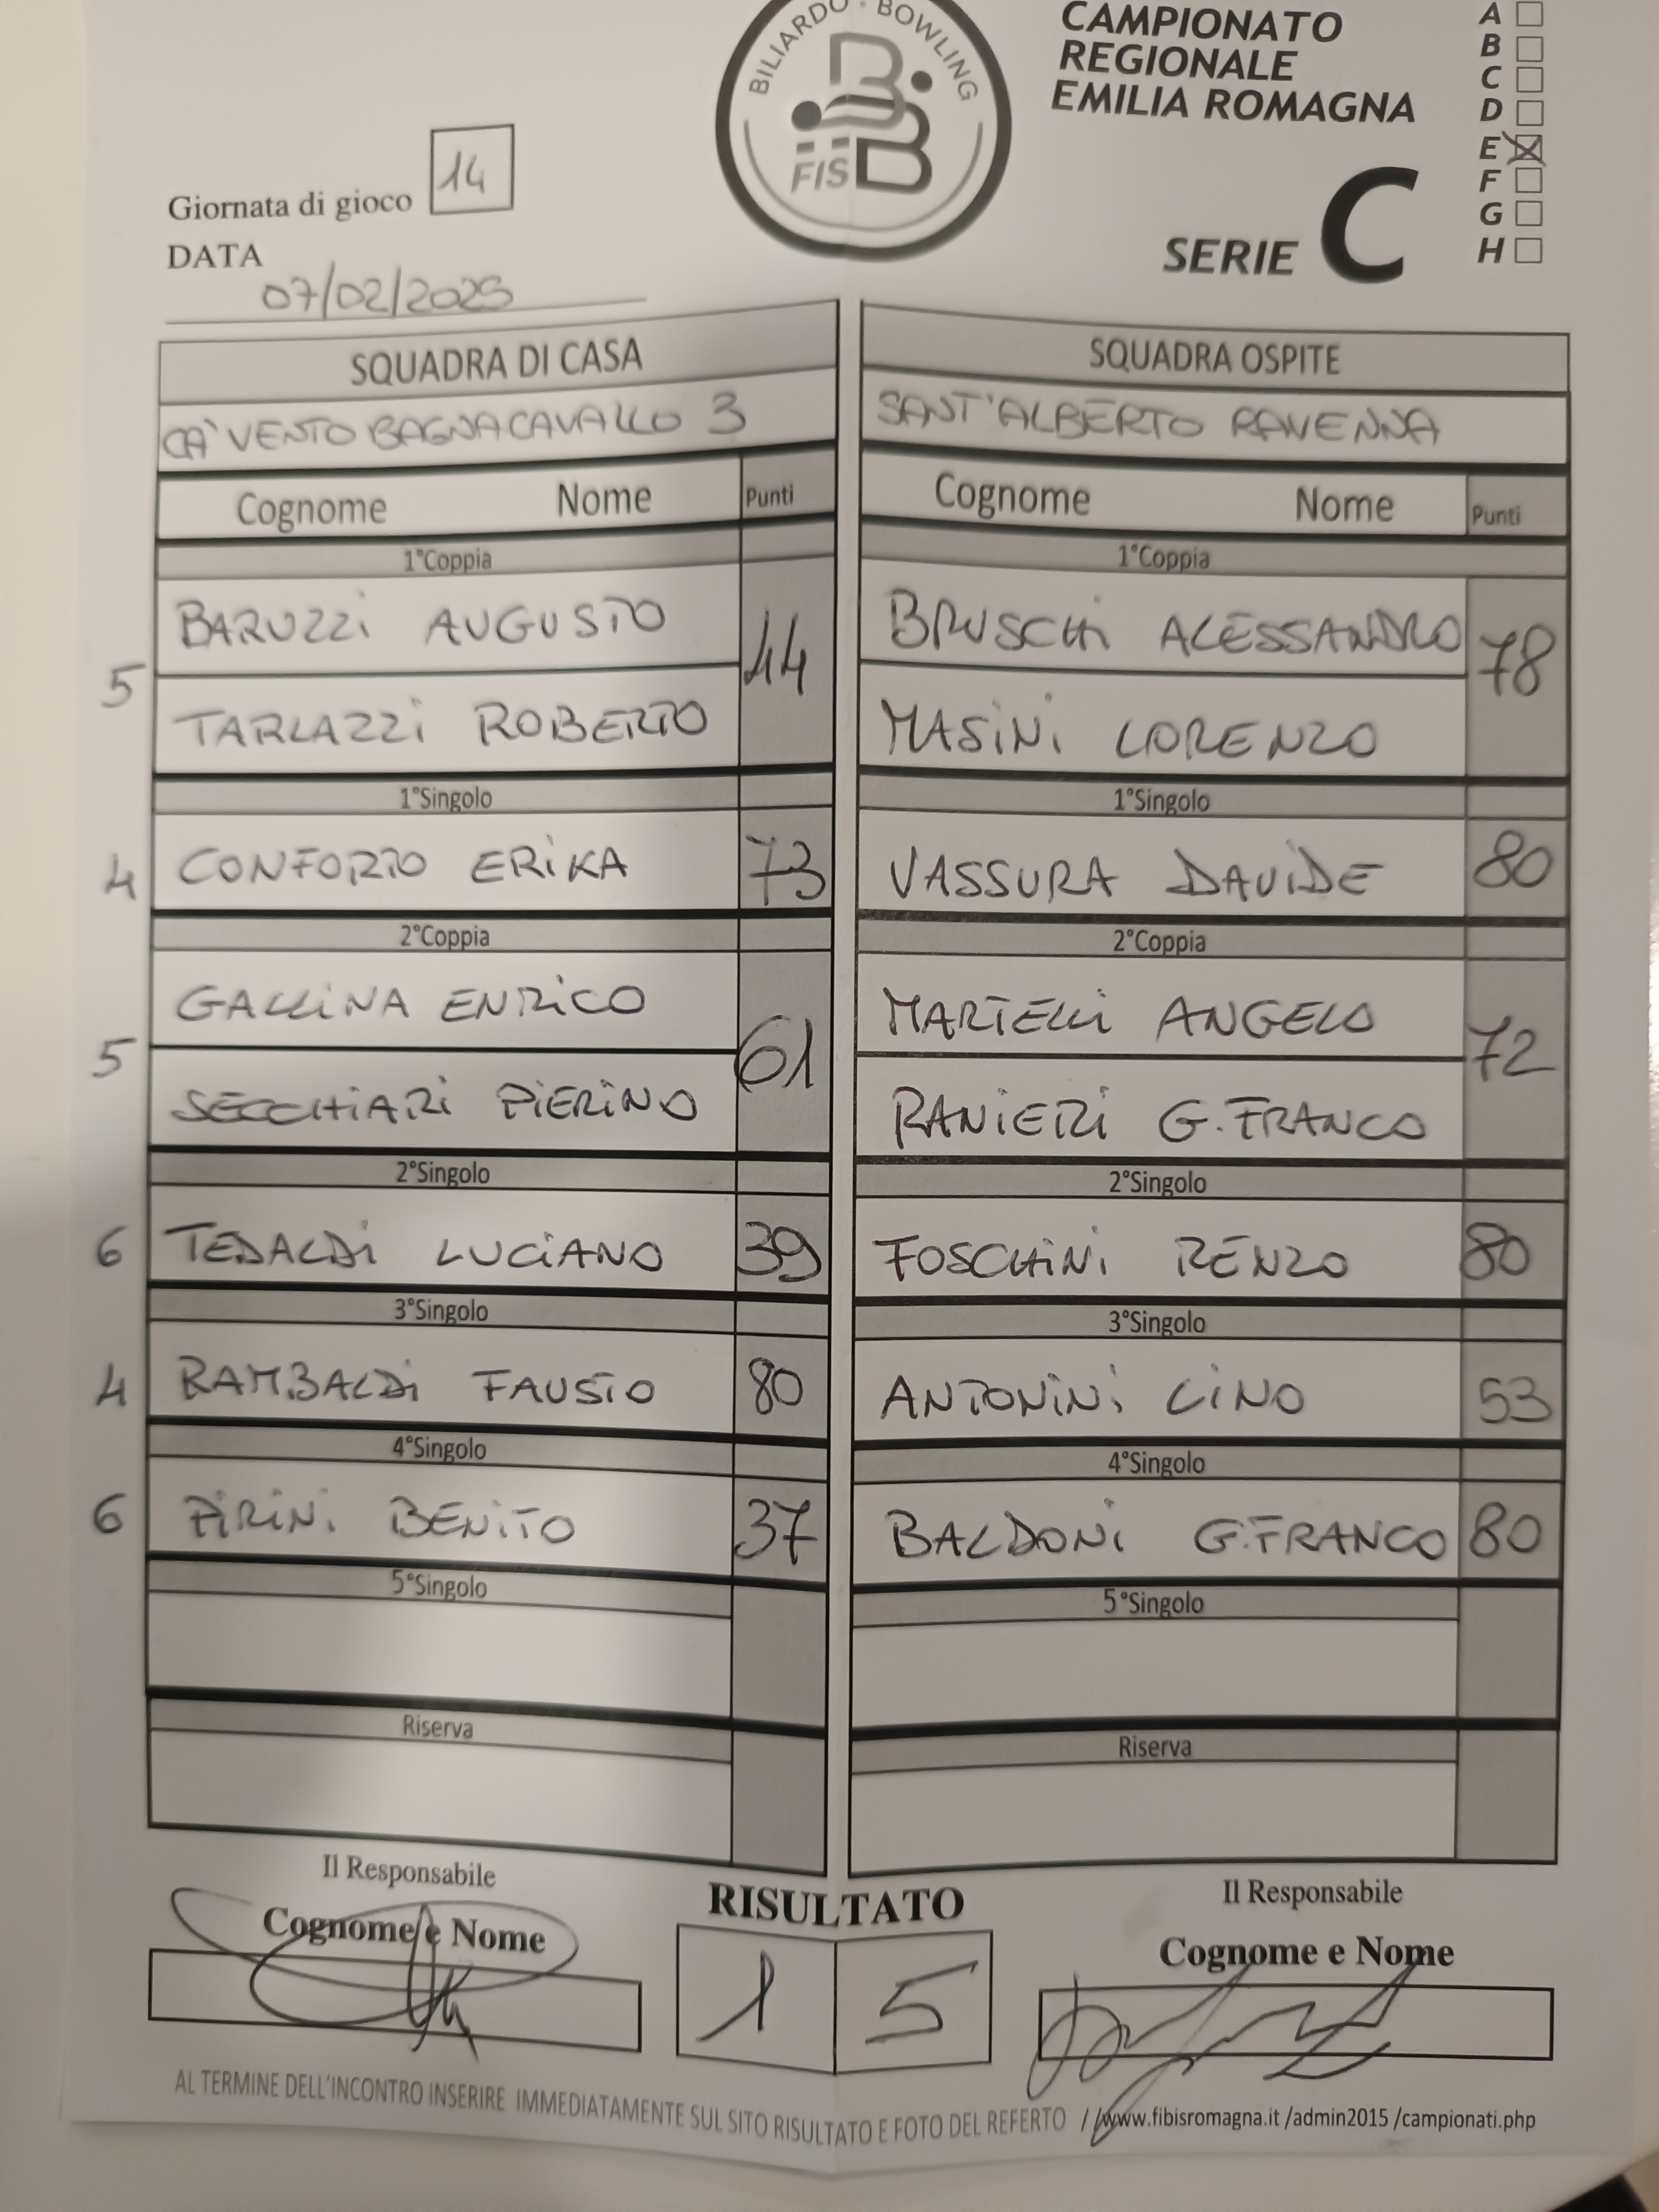 BILIARDO · BOWLING
FISBB
CAMPIONATO
REGIONALE
EMILIA ROMAGNA
SERIE C
A
B
C
D
E X
F
G
H
Giornata di gioco 14
DATA
07/02/2025
SQUADRA DI CASA
CA' VENTO BAGNACAVALLO 3
Cognome Nome Punti
1°Coppia
BARUZZI AUGUSTO
5 44
TARLAZZI ROBERTO
1°Singolo
4 CONFORTO ERIKA 73
2°Coppia
GALLINA ENRICO
5 61
SECCHIARI PIERINO
2°Singolo
6 TEDALDI LUCIANO 39
3°Singolo
4 RAMBALDI FAUSTO 80
4°Singolo
6 PIRINI BENITO 37
5°Singolo
Riserva
SQUADRA OSPITE
SANT'ALBERTO RAVENNA
Cognome Nome Punti
1°Coppia
BRUSCHI ALESSANDRO
78
MASINI LORENZO
1°Singolo
VASSURA DAVIDE 80
2°Coppia
MARTELLI ANGELO
72
RANIERI G.FRANCO
2°Singolo
FOSCHINI RENZO 80
3°Singolo
ANTONINI LINO 53
4°Singolo
BALDONI G.FRANCO 80
5°Singolo
Riserva
Il Responsabile
Cognome e Nome
RISULTATO
1 5
Il Responsabile
Cognome e Nome
AL TERMINE DELL'INCONTRO INSERIRE IMMEDIATAMENTE SUL SITO RISULTATO E FOTO DEL REFERTO //www.fibisromagna.it /admin2015 /campionati.php